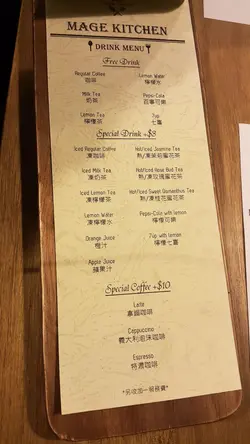 MAGE KITCHEN
DRINK MENU
Free Drink
Regular Coffee
咖啡
Lemon Water
檸檬水
Milk Tea
奶茶
Pepsi-Cola
百事可樂
Lemon Tea
檸檬茶
7up
七喜
Special Drink +$8
Iced Regular Coffee
凍咖啡
Hot/Iced Jasmine Tea
熱/凍茉莉蜜花茶
Iced Milk Tea
凍奶茶
Hot/Iced Rose Bud Tea
熱/凍玫瑰蜜花茶
Iced Lemon Tea
凍檸檬茶
Hot/Iced Sweet Osmanthus Tea
熱/凍桂花蜜花茶
Lemon Water
凍檸檬水
Pepsi-Cola with lemon
檸檬可樂
Orange Juice
橙汁
7Up with lemon
檸檬七喜
Apple Juice
蘋果汁
Special Coffee +$10
Latte
拿鐵咖啡
Cappuccino
義大利泡沫咖啡
Espresso
特濃咖啡
*另收加一服務費*